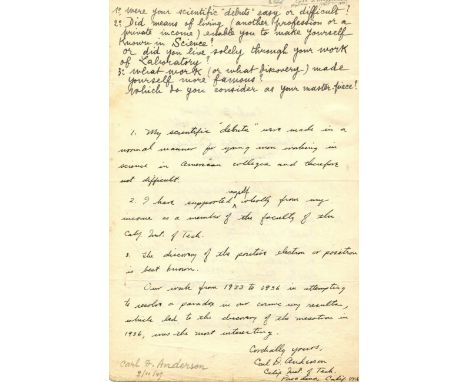 1º were your scientific "debuts" easy or difficult?
2º Did means of living (another profession or a
private income) enable you to make yourself
known in Science?
or did you live solely through your work
of Laboratory?
3º what work (or what discovery) made
yourself more famous?
which do you consider as your master-piece?
1. My scientific "debuts" were made in a
normal manner for young men working in
science in American colleges and therefore
not difficult.
2. I have supported myself wholly from my
income as a member of the faculty of the
Calif. Inst. of Tech.
3. The discovery of the positive electron or positron
is best known.
Our work from 1933 to 1936 in attempting
to resolve a paradox in our cosmic ray results,
which led to the discovery of the mesotron in
1936, was the most interesting.
Cordially yours,
Carl D. Anderson
Calif. Inst. of Tech.
Pasadena, Calif.
Carl D. Anderson